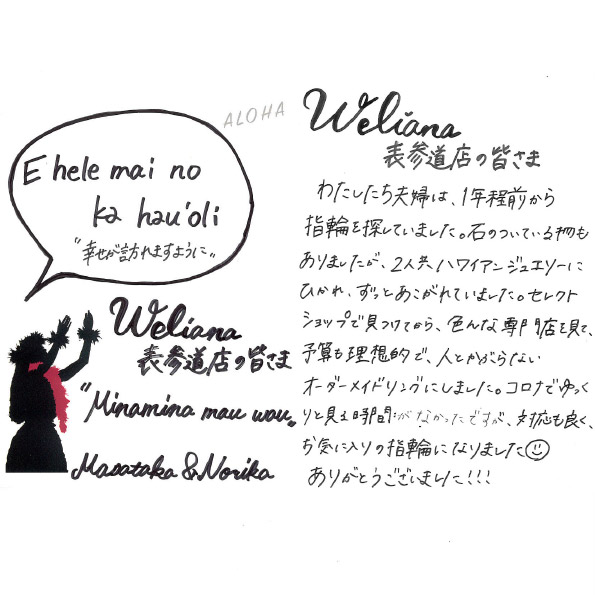 ALOHA
E hele mai no
ka hau'oli
"幸せが訪れますように"
Weliana
表参道店の皆さま
"Minamina mau wau"
Masataka & Norika
Weliana
表参道店の皆さま
わたしたち夫婦は、1年程前から
指輪を探していました。石のついている物も
ありましたが、2人共ハワイアンジュエリーに
ひかれ、ずっとあこがれていました。セレクト
ショップで見つけてから、色んな専門店を見て、
予算も理想的で、人とかぶらない
オーダーメイドリングにしました。コロナでゆっく
りと見る時間がなかったですが、対応も良く、
お気に入りの指輪になりました☺
ありがとうございました!!!